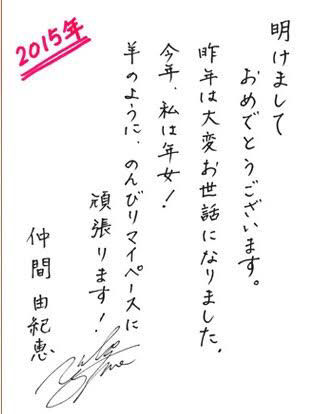 2015年
明けまして
おめでとうございます。
昨年は大変お世話になりました。
今年、私は年女!
羊のように、のんびりマイペースに
頑張ります!
仲間 由紀恵